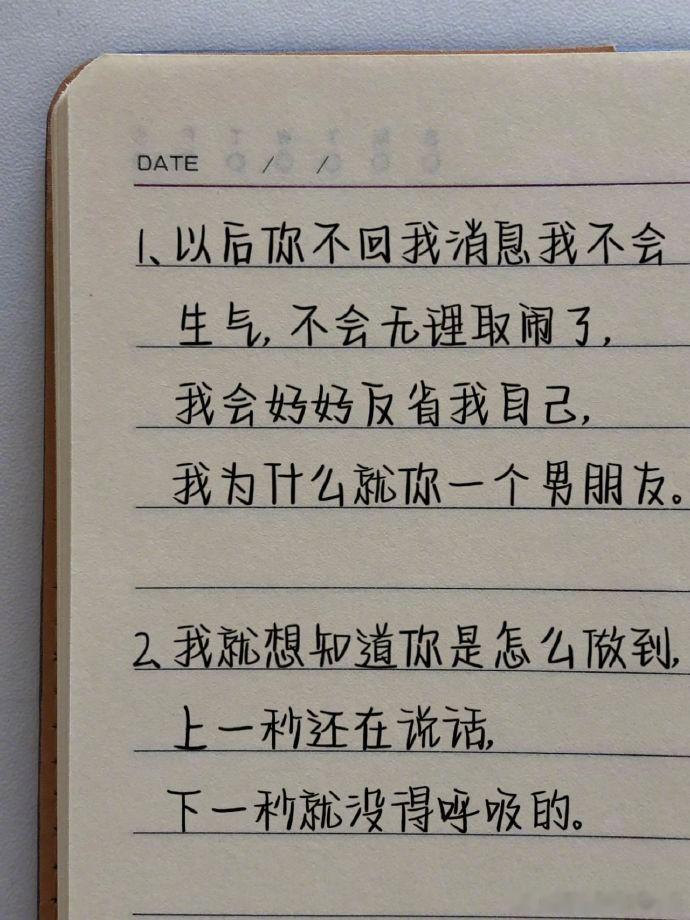 DATE / /
1、以后你不回我消息我不会
生气,不会无理取闹了,
我会好好反省我自己,
我为什么就你一个男朋友。
2、我就想知道你是怎么做到,
上一秒还在说话,
下一秒就没得呼吸的。